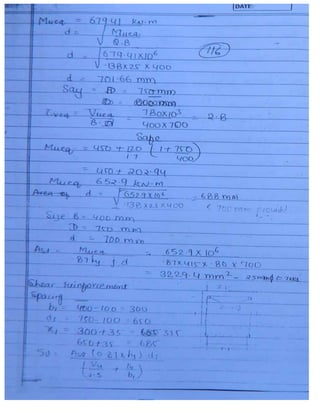 DATE
Mueq = 679.41 kN.m
d = √ Mueq / Q.B
d = √ 679.41x10⁶ / .138x25x400
116
d = 701.66 mm
Say D = 750 mm
D = 800mm
= Vueq / B.d = 780x10³ / 400x700 = 2.8
Safe
Mueq = 450 + 120 / 1.7 (1 + 750 / 400)
= 450 + 202.94
Mueq 652.9 kN.m
d = √ 652.9x10⁶ / .138x25x400 = 688 mm
< 700 mm provid
Size B = 400 mm
D = 750 mm
d = 700 mm
Ast = Mueq / .87 fy j d = 652.9x10⁶ / .87x415x.80x700
= 3229.4 mm²
Shear reinforcement
Spacing
b₁ = 400-100 = 300
d₁ = 750-100 = 650
x₁ = 300+35 = 335
650+35 = 685
Sv = Asv (0.87xfy) d₁
( Vu / 2.5 + / b₁ )